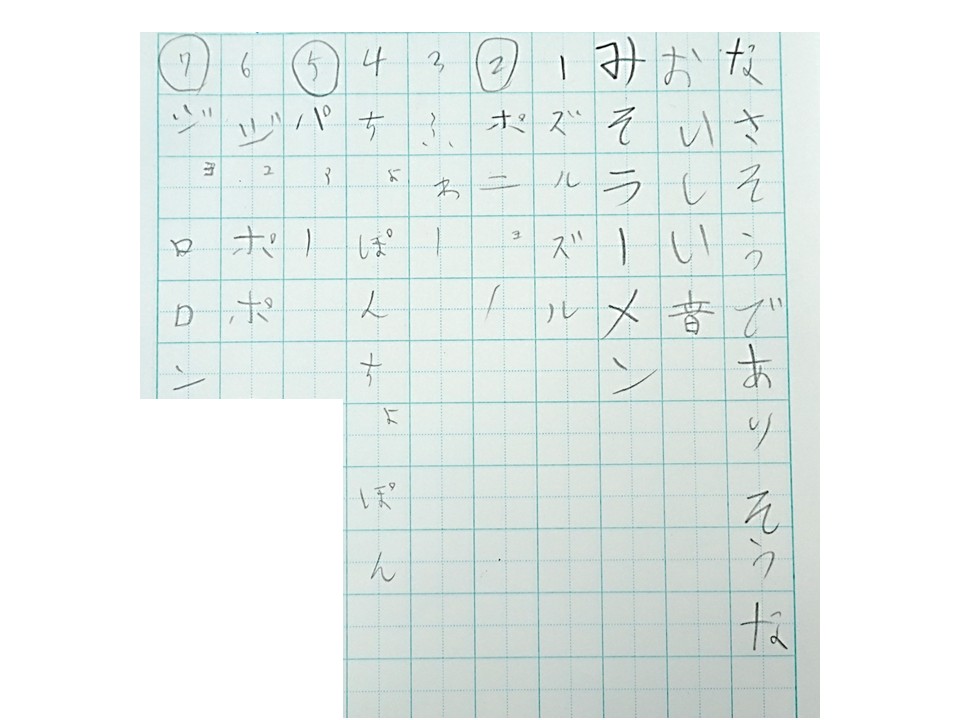 なさそうでありそうな
おいしい音
みそラーメン
1 ズルズル
② ポニョー
3 ふわー
4 ちょぽんちょぽん
⑤ パァー
6 ジュポポ
⑦ ジョロロン